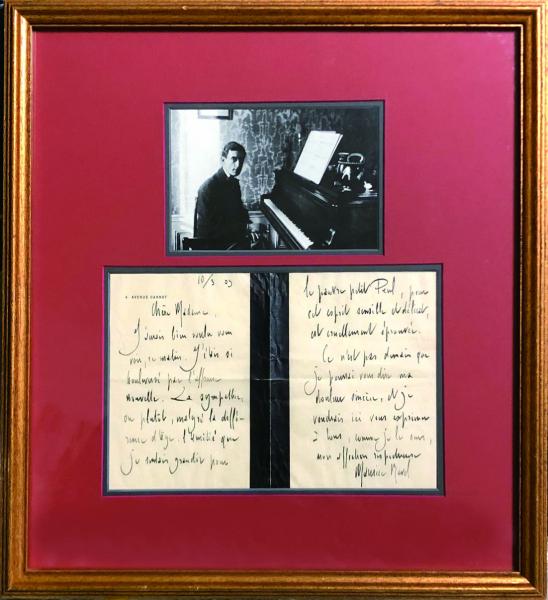 10/3 09
4 AVENUE CARNOT
Chère Madame,
J'aurais bien voulu vous
voir, ce matin. J'étais si
bouleversé par l'affreuse
nouvelle. La sympathie,
ou plutôt, malgré la diffé-
rence d'âge, l'amitié que
je sentais grandir pour
le pauvre petit Paul, pour
cet esprit sensible et délicat,
est cruellement éprouvée.
Ce n'est pas demain que
je pourrai vous dire ma
douleur sincère, et je
voudrais ici vous exprimer
à tous, comme je le sens,
mon affection respectueuse
Maurice Ravel